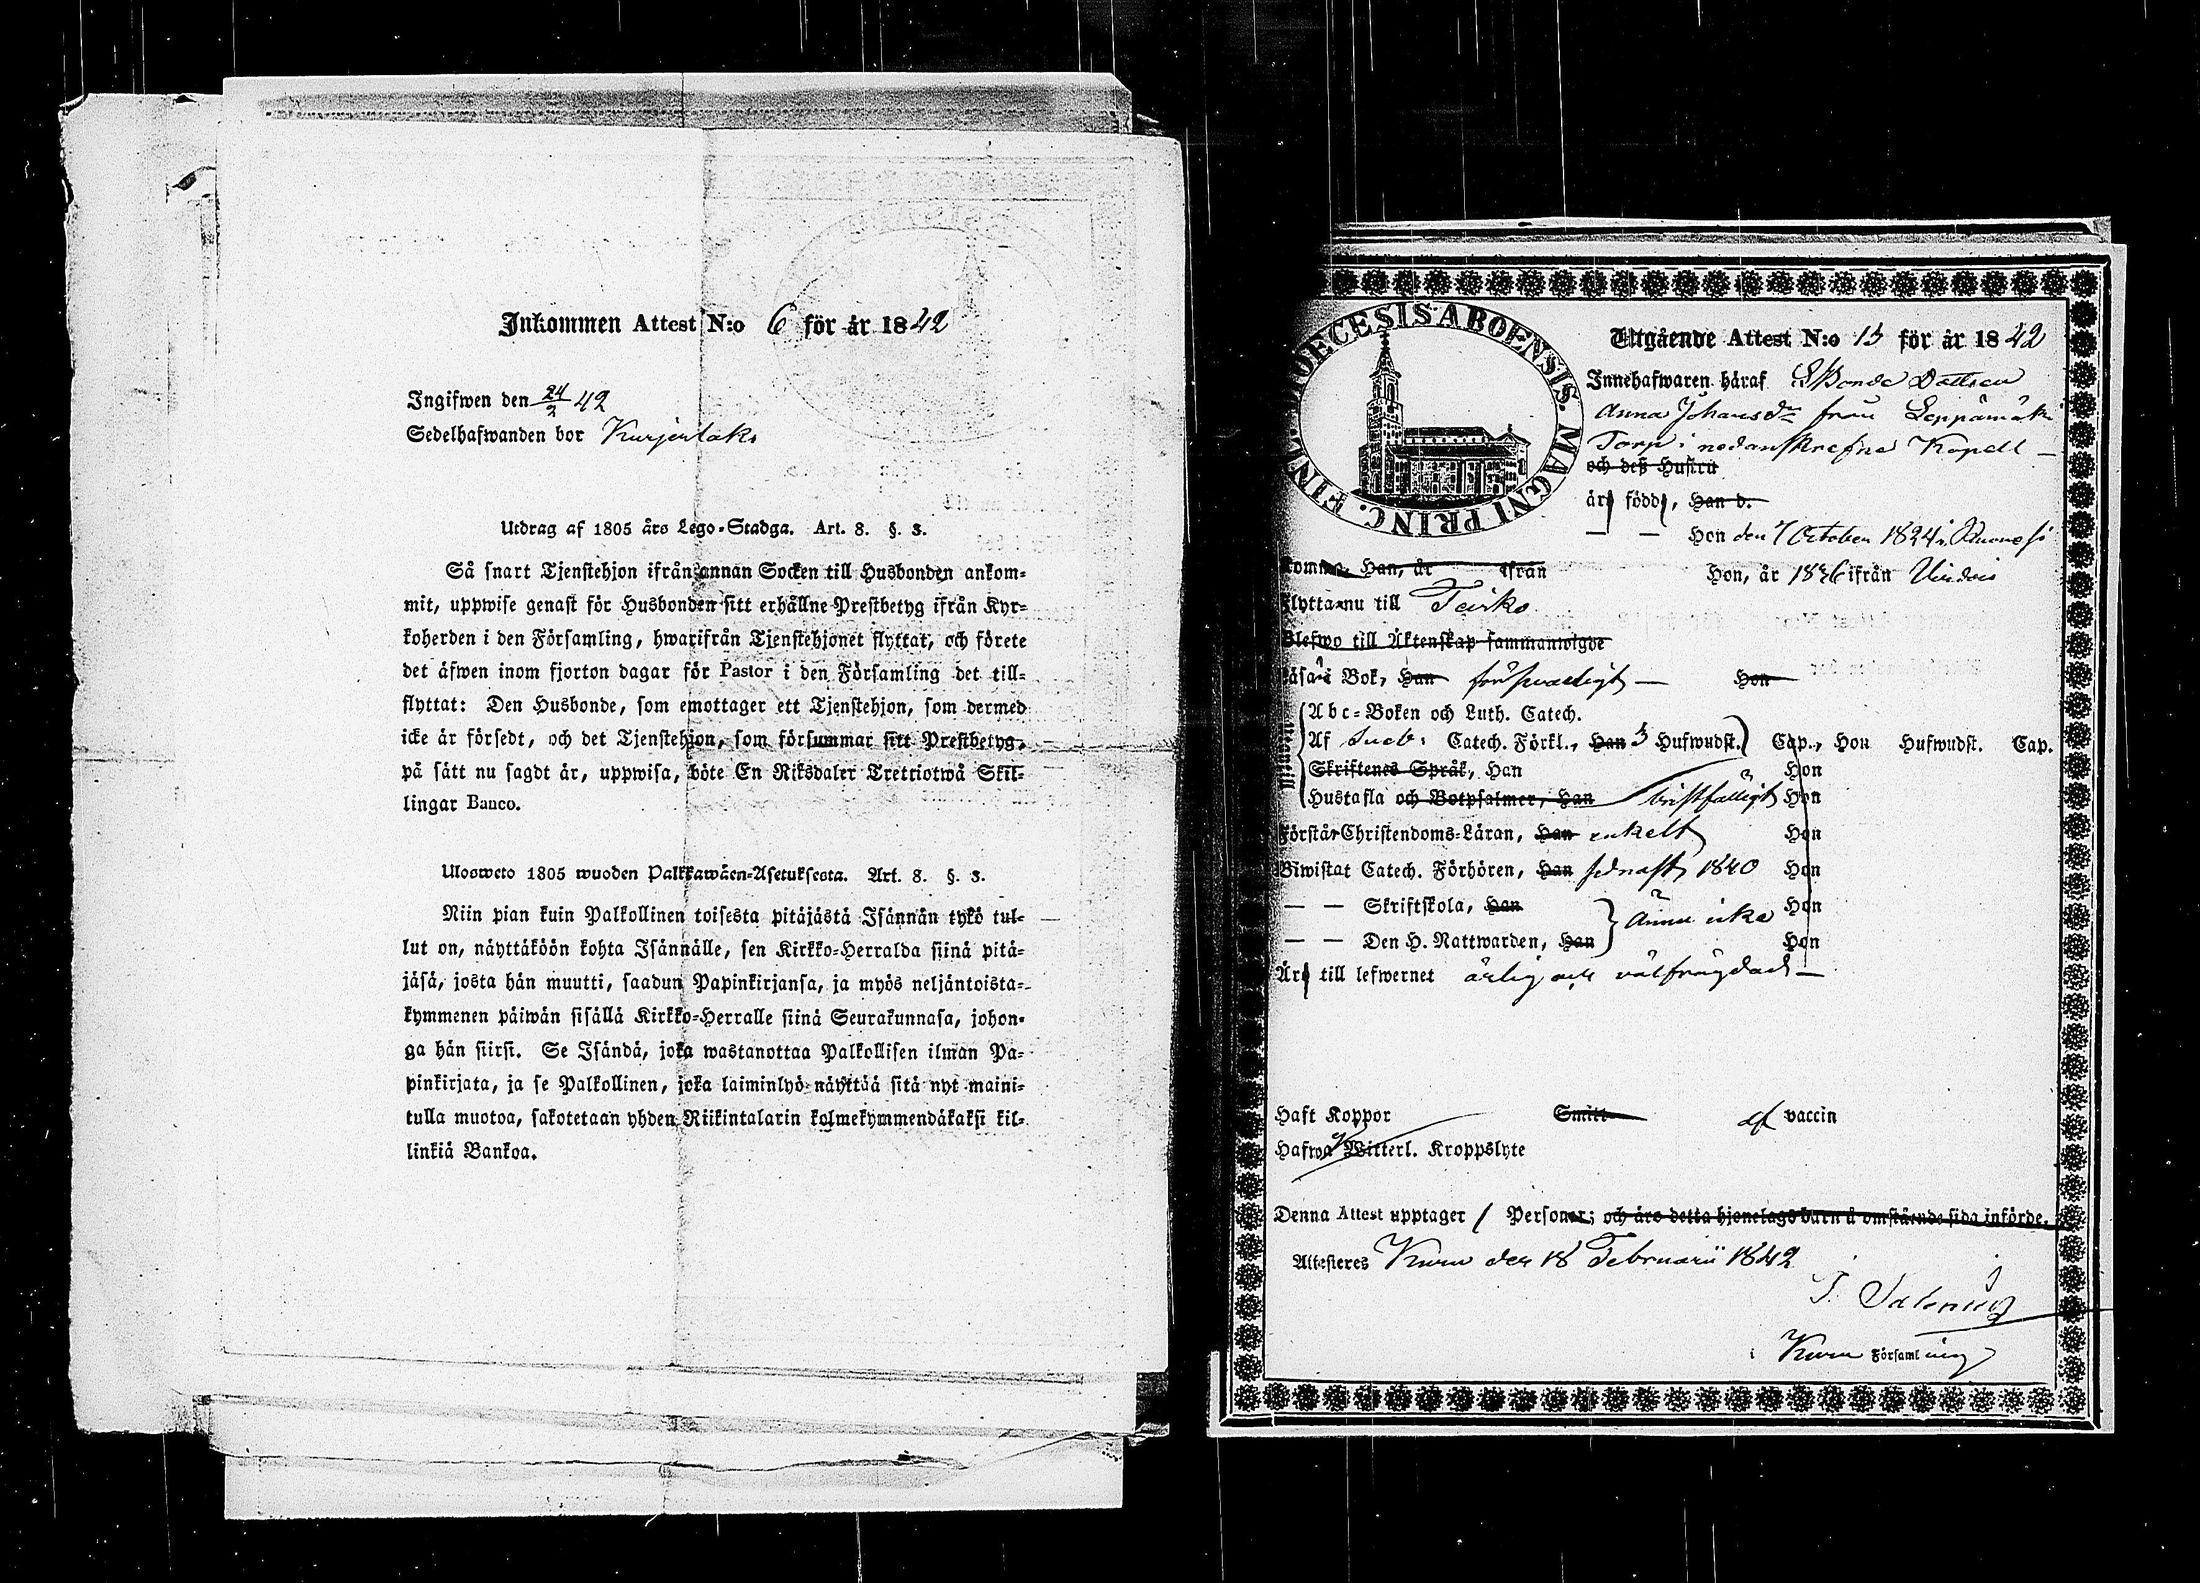 Inkommen Attest N:o 6 för år 1842
Ingifwen den 24/2 42
Sedelhafwanden bor Kurjenlaks
Utdrag af 1805 års Lego-Stadga. Art. 8. §. 3.
Så snart Tjenstehjon ifrån annan Socken till Husbonden ankom-
mit, uppwise genast för Husbonden sitt erhållne Prestbetyg ifrån Kyr-
koherden i den Församling, hwarifrån Tjenstehjonet flyttat, och förete
det äfwen inom fjorton dagar för Pastor i den Församling det till-
flyttat: Den Husbonde, som emottager ett Tjenstehjon, som dermed
icke är försedt, och det Tjenstehjon, som försummar sitt Prestbetyg,
på sätt nu sagdt är, uppwisa, böte En Riksdaler Trettiotwå Skil-
lingar Banco.
Ulosweto 1805 wuoden Palkkawäen-Asetuksesta. Art. 8. §. 3.
Niin pian kuin Palkollinen toisesta pitäjästä Isännän tykö tul-
lut on, näyttäköön kohta Isännälle, sen Kirkko-Herralda siinä pitä-
jäsä, josta hän muutti, saadun Papinkirjansa, ja myös neljäntoista-
kymmenen päiwän sisällä Kirkko-Herralle siinä Seurakunnasa, johon-
ga hän siirsi. Se Isändä, joka wastanottaa Palkollisen ilman Pa-
pinkirjata, ja se Palkollinen, joka laiminlyö näyttää sitä nyt maini-
tulla muotoa, sakotetaan yhden Riikintalarin kolmekymmendäkaksi kil-
linkiä Bankoa.
DIOECESIS ABOENSIS. MAGNI PRINC. FINL.
Utgående Attest N:o 13 för år 1842
Innehafwaren häraf Bonde Dottren
Anna Johansdr från Leppämäki
Torp i nedanskrefne Kapell
och deß Hustru
är född, Han d.
— — Hon den 7 October 1824 i
Komm. Han, år ifrån Hon, år 1836 ifrån
Flytta nu till Teisko
Blefwo till Äktenskap sammanwigde
Läsa i Bok, Han försvarligt — Hon
Abc-Boken och Luth. Catech.
Af Sveb. Catech. Förkl., Han 3 Hufwudst. Cap., Hon Hufwudst. Cap.
Skriftenes Språk, Han Hon
Hustafla och Botpsalmer, Han bristfälligt Hon
Förstår Christendoms-Läran, Han enkelt Hon
Biwistat Catech. Förhören, Han sednast 1840 Hon
— — Skriftskola, Han Hon
Ännu icke
— — Den H. Nattwarden, Han Hon
Är till lefwernet ärlig och välfrägdad —
Haft Koppor Smitt af vaccin
Hafwa Witterl. Kroppslyte
Denna Attest upptager 1 Personer; och äro detta hjonelags barn å omstående sida införde.
Attesteres Kuru den 18 Februarii 1842
i Kuru Församling